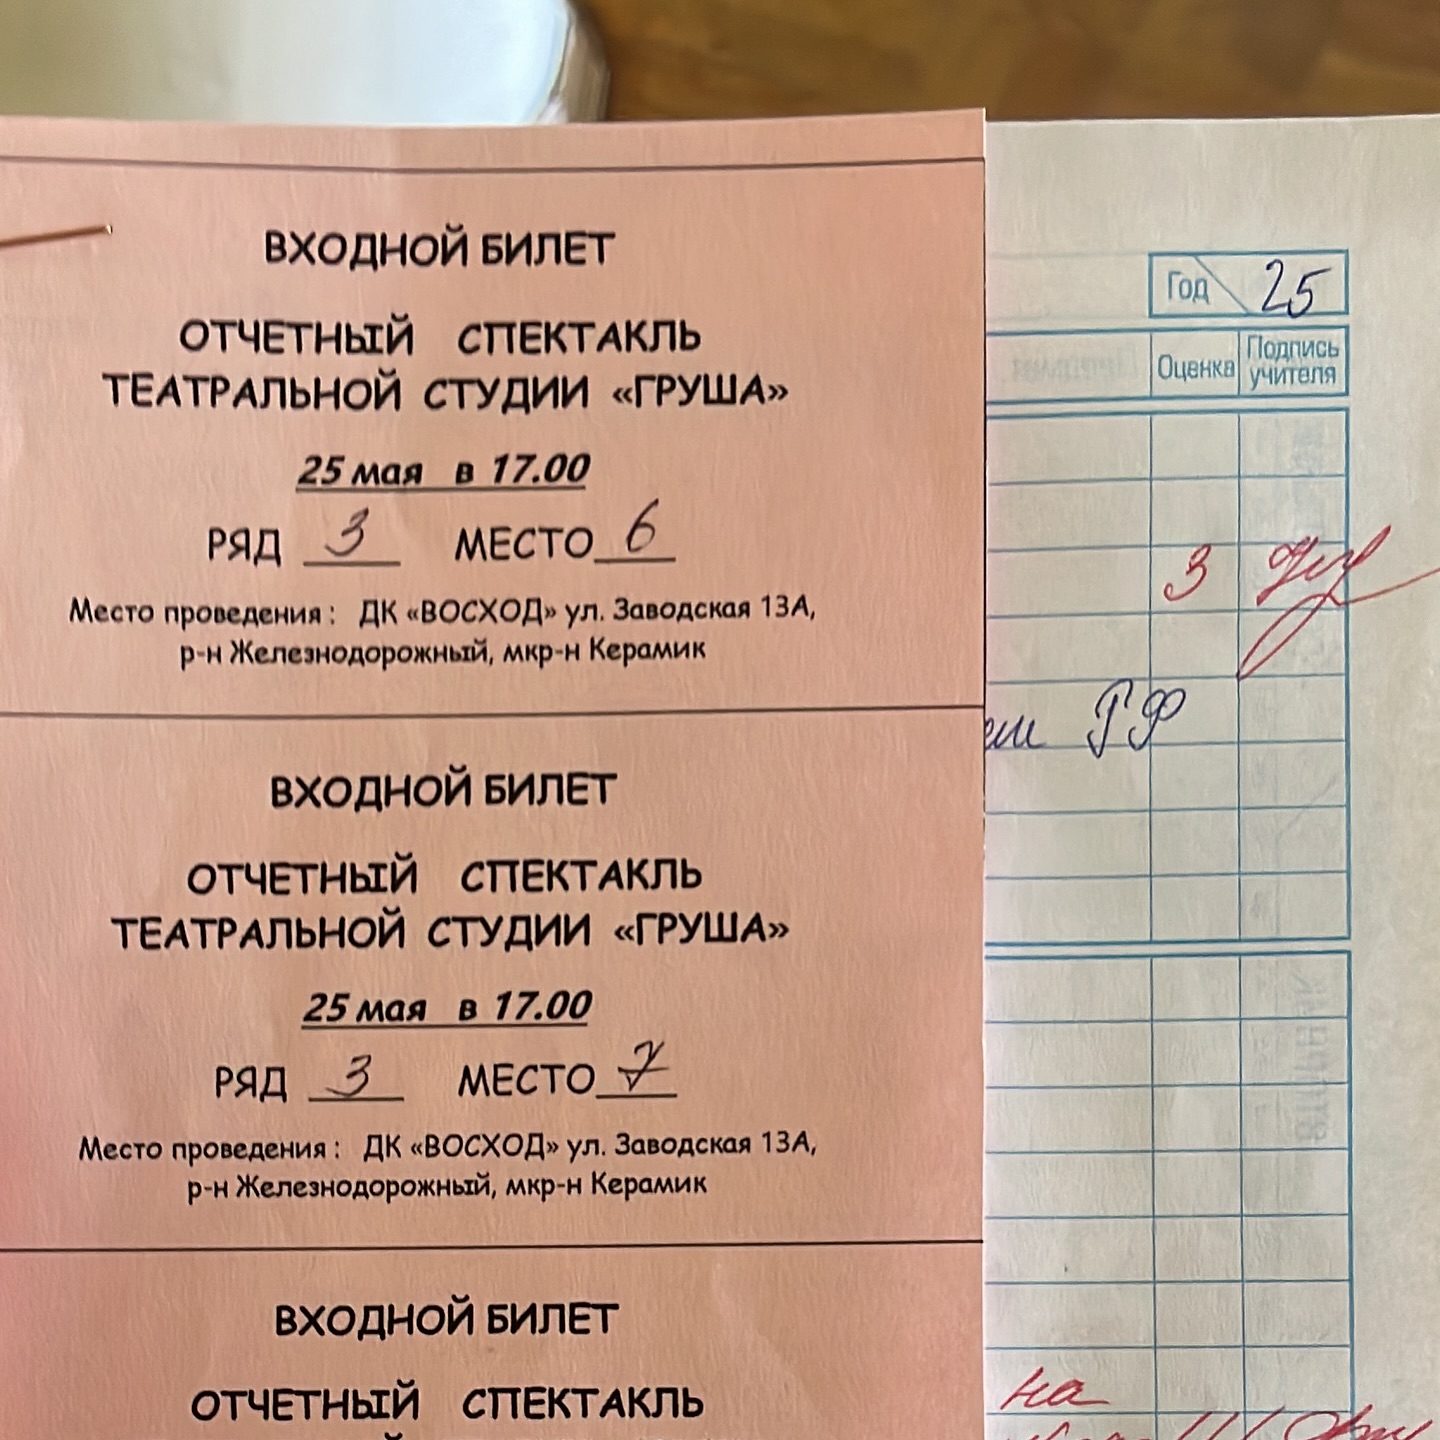 ВХОДНОЙ БИЛЕТ
ОТЧЕТНЫЙ СПЕКТАКЛЬ
ТЕАТРАЛЬНОЙ СТУДИИ «ГРУША»
25 мая в 17.00
РЯД 3 МЕСТО 6
Место проведения : ДК «ВОСХОД» ул. Заводская 13А,
р-н Железнодорожный, мкр-н Керамик
ВХОДНОЙ БИЛЕТ
ОТЧЕТНЫЙ СПЕКТАКЛЬ
ТЕАТРАЛЬНОЙ СТУДИИ «ГРУША»
25 мая в 17.00
РЯД 3 МЕСТО 7
Место проведения : ДК «ВОСХОД» ул. Заводская 13А,
р-н Железнодорожный, мкр-н Керамик
ВХОДНОЙ БИЛЕТ
ОТЧЕТНЫЙ СПЕКТАКЛЬ
Год 25
Оценка
Подпись
учителя
3
РФ
на